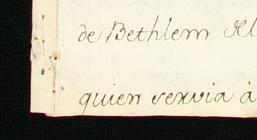 de Bethlem Al
quien servia à